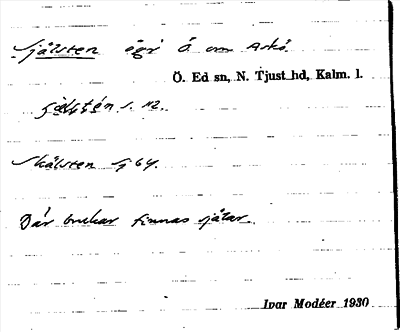 Själsten ögr Ö. om Askö.
Ö. Ed sn, N. Tjust hd, Kalm. l.
s. N2.
Skälsten Gj 64.
Där brukar finnas själar.
Ivar Modéer 1930